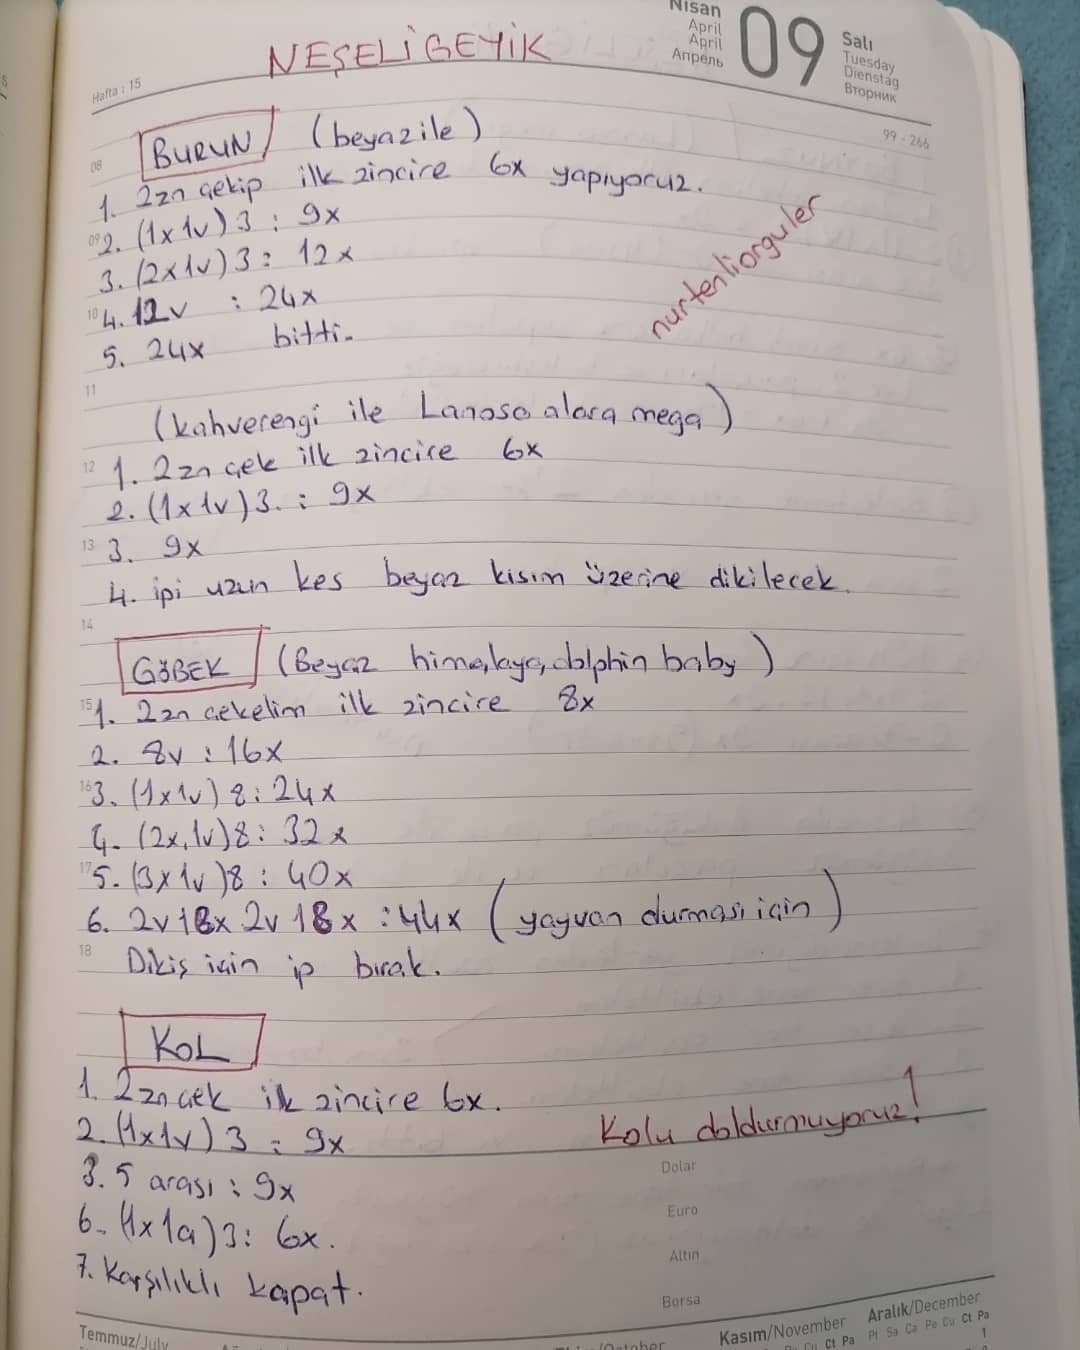 Nisan
April
April
Апрель
09
Salı
Tuesday
Dienstag
Вторник
Hafta : 15
99 - 266
NEŞELİ GEYİK
BURUN (beyaz ile)
08
1. 2zn çekip ilk zincire 6x yapıyoruz.
09 2. (1x1v)3 : 9x
3. (2x1v)3 : 12x
10 4. 12v : 24x
5. 24x bitti.
nurtenliorguler
11
(kahverengi ile Lanoso alara mega)
12 1. 2zn çek ilk zincire 6x
2. (1x1v)3. : 9x
13 3. 9x
4. ipi uzun kes beyaz kısım üzerine dikilecek.
14
GÖBEK (Beyaz himalaya, dolphin baby)
15 1. 2zn çekelim ilk zincire 8x
2. 8v : 16x
16 3. (1x1v)8 : 24x
4. (2x,1v)8 : 32x
17 5. (3x1v)8 : 40x
6. 2v 18x 2v 18x : 44x (yayvan durması için)
18 Dikiş için ip bırak.
KOL
1. 2zn çek ilk zincire 6x.
2. (1x1v)3 : 9x
Kolu doldurmuyoruz!
3. 5 arası : 9x
6. (1x1a)3 : 6x.
7. Karşılıklı kapat.
Dolar
Euro
Altın
Borsa
Temmuz/July
Kasım/November
Ct Pa
Aralık/December
Pt Sa Ça Pe Cu Ct Pa
1